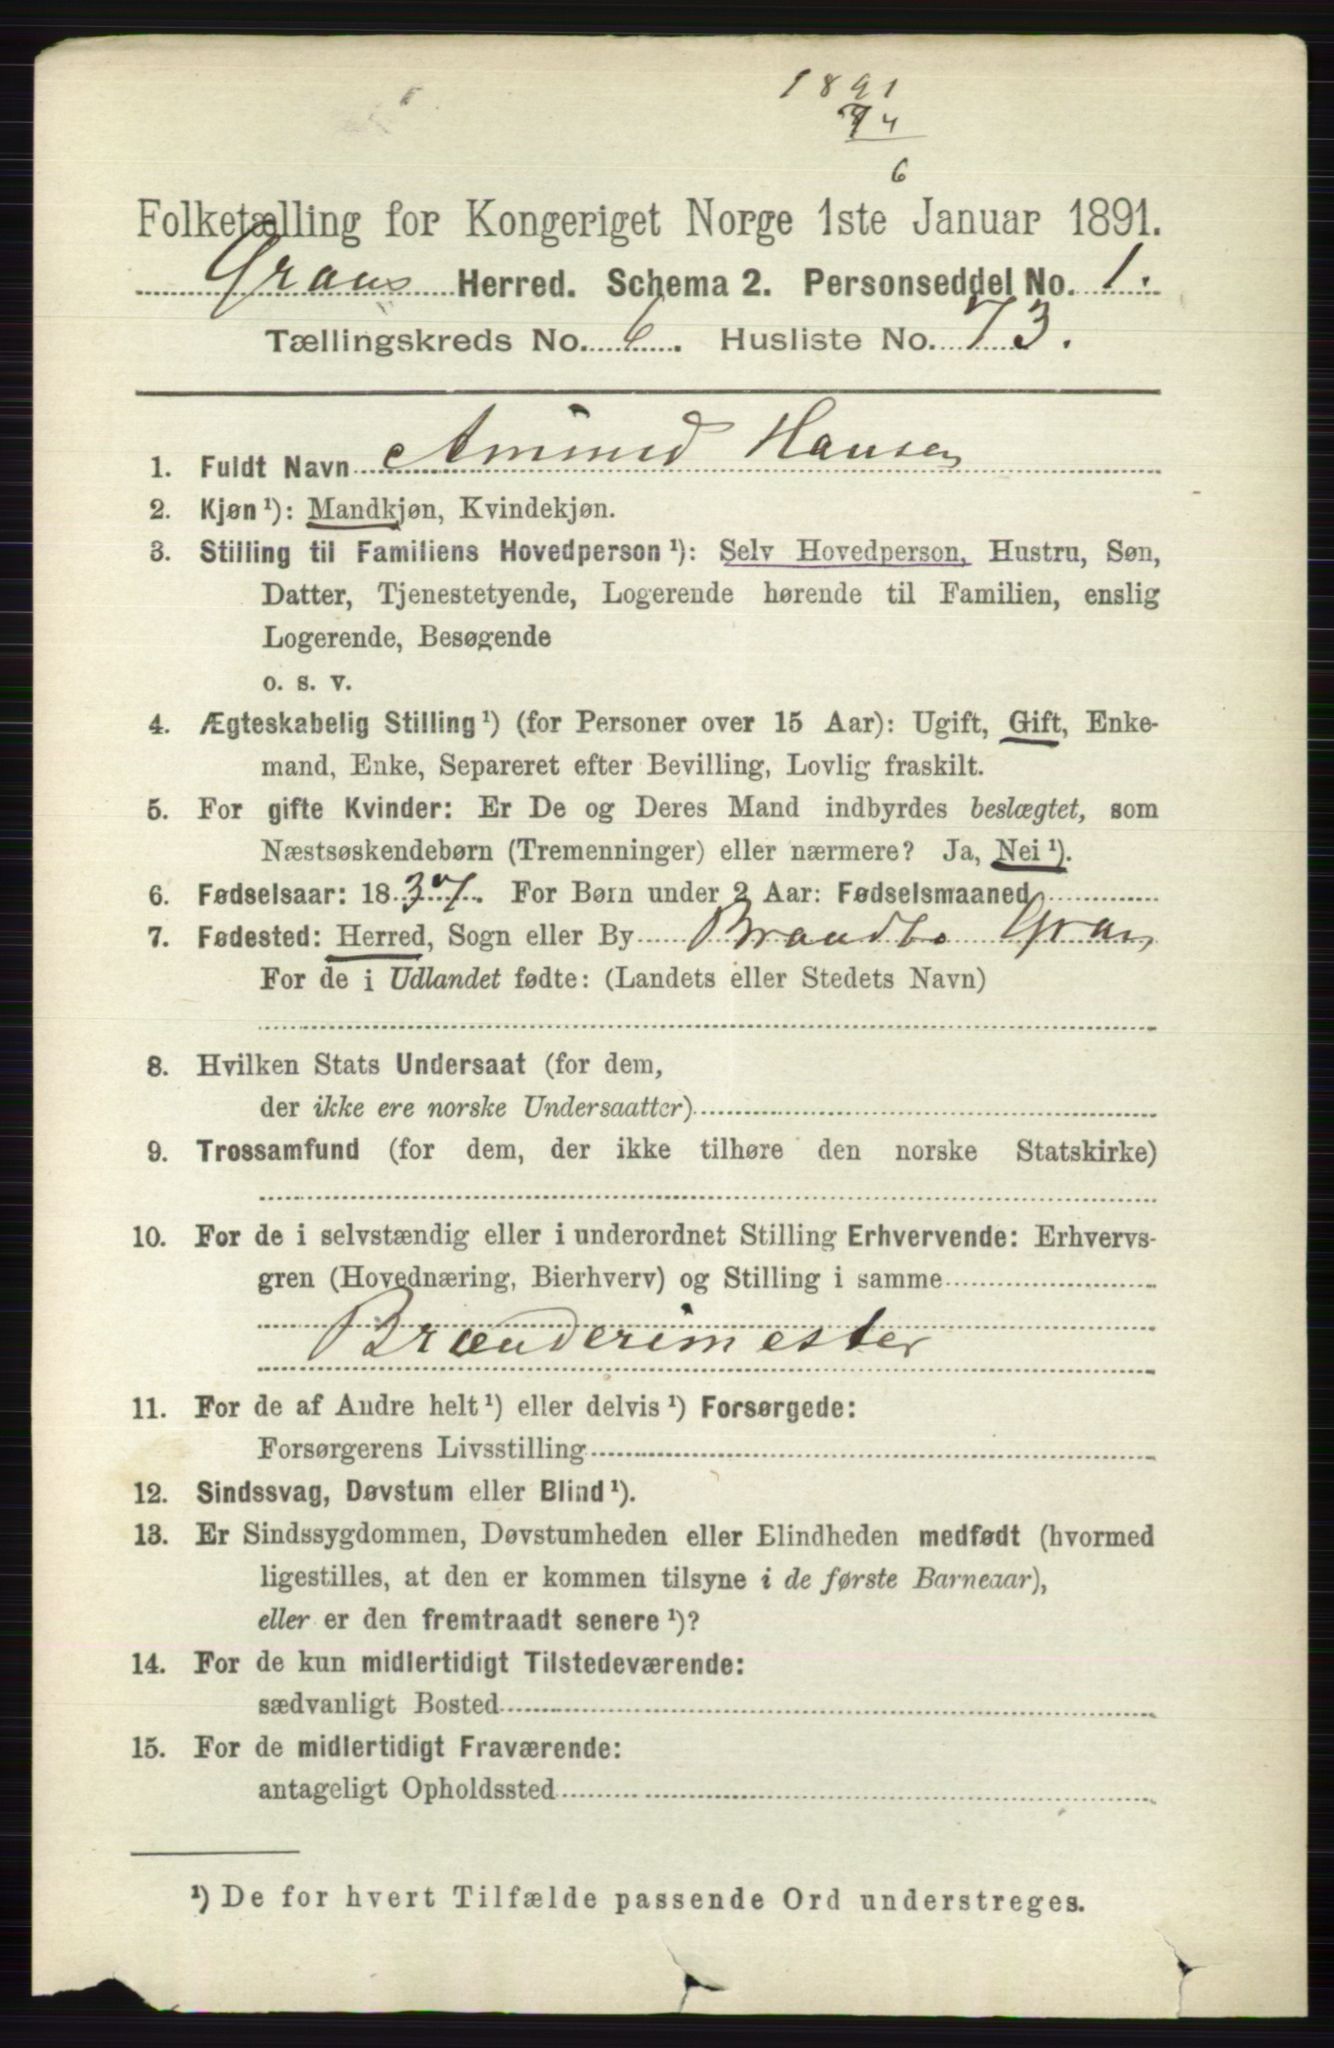 1891
74
6
Folketælling for Kongeriget Norge 1ste Januar 1891.
Grans Herred. Schema 2. Personseddel No. 1.
Tællingskreds No. 6. Husliste No. 73.
1. Fuldt Navn Amund Hansen
2. Kjøn¹): Mandkjøn, Kvindekjøn.
3. Stilling til Familiens Hovedperson¹): Selv Hovedperson, Hustru, Søn,
Datter, Tjenestetyende, Logerende hørende til Familien, enslig
Logerende, Besøgende
o. s. v.
4. Ægteskabelig Stilling¹) (for Personer over 15 Aar): Ugift, Gift, Enke-
mand, Enke, Separeret efter Bevilling, Lovlig fraskilt.
5. For gifte Kvinder: Er De og Deres Mand indbyrdes beslægtet, som
Næstsøskendebørn (Tremenninger) eller nærmere? Ja, Nei¹).
6. Fødselsaar: 1837. For Børn under 2 Aar: Fødselsmaaned
7. Fødested: Herred, Sogn eller By Brandbo Gran
For de i Udlandet fødte: (Landets eller Stedets Navn)
8. Hvilken Stats Undersaat (for dem,
der ikke ere norske Undersaatter)
9. Trossamfund (for dem, der ikke tilhøre den norske Statskirke)
10. For de i selvstændig eller i underordnet Stilling Erhvervende: Erhvervs-
gren (Hovednæring, Bierhverv) og Stilling i samme
Brænderimester
11. For de af Andre helt¹) eller delvis¹) Forsørgede:
Forsørgerens Livsstilling
12. Sindssvag, Døvstum eller Blind¹).
13. Er Sindssygdommen, Døvstumheden eller Blindheden medfødt (hvormed
ligestilles, at den er kommen tilsyne i de første Barneaar),
eller er den fremtraadt senere¹)?
14. For de kun midlertidigt Tilstedeværende:
sædvanligt Bosted
15. For de midlertidigt Fraværende:
antageligt Opholdssted
¹) De for hvert Tilfælde passende Ord understreges.